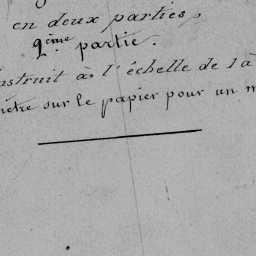 en deux parties,
2ème partie.
nstruit à l'échelle de 1 à
mètre sur le papier pour un m